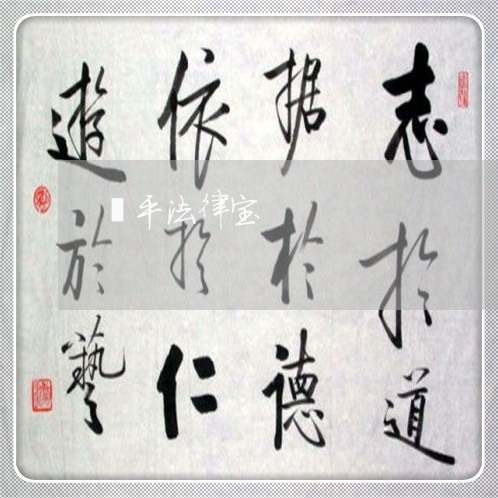 志於道
据於德
依於仁
遊於藝
平法律宝